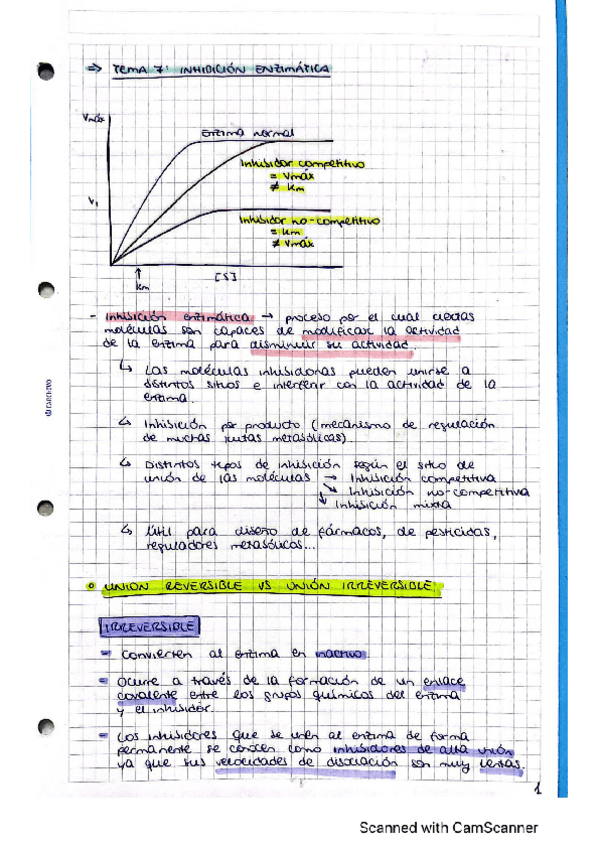 => TEMA 7: INHIBICIÓN ENZIMÁTICA
Vmáx
Enzima normal
Inhibidor competitivo
= Vmáx
≠ Km
V₁
Inhibidor no-competitivo
= Km
≠ Vmáx
↑
Km
[S]
- Inhibición enzimática → proceso por el cual ciertas
moléculas son capaces de modificar la actividad
de la enzima para disminuir su actividad.
↳ Las moléculas inhibidoras pueden unirse a
distintos sitios e interferir con la actividad de la
enzima.
↳ Inhibición por producto (mecanismo de regulación
de muchas rutas metabólicas).
↳ Distintos tipos de inhibición según el sitio de
unión de las moléculas → Inhibición competitiva
↘ Inhibición no-competitiva
↓ Inhibición mixta
↳ Útil para diseño de fármacos, de pesticidas,
reguladores metabólicos...
UNION REVERSIBLE VS UNIÓN IRREVERSIBLE
IRREVERSIBLE
- Convierten al enzima en inactivo.
- Ocurre a través de la formación de un enlace
covalente entre los grupos químicos del enzima
y el inhibidor.
- Los inhibidores que se unen al enzima de forma
permanente se conocen como inhibidores de alta unión
ya que sus velocidades de disociación son muy lentas.
1
Scanned with CamScanner